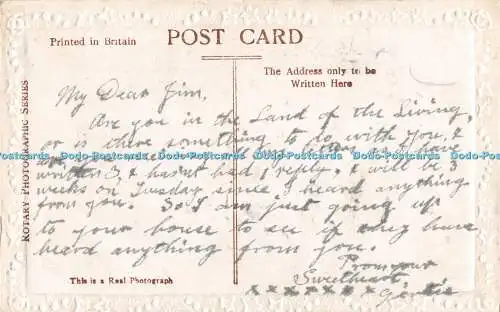 Printed in Britain
POST CARD
The Address only to be
Written Here
ROTARY PHOTOGRAPHIC SERIES
My Dear Jim,
Are you in the Land of the Living,
or is there something to do with you, &
as I have
written 3 & hasn't had 1 reply, & will be 3
weeks on Tuesday since I heard anything
from you. So I am just going up
to your house to see if they have
heard anything from you.
From your
Sweetheart
This is a Real Photograph
x x x x x x x
Dodo-Postcards Dodo-Postcards Dodo-Postcards Dodo-Postcards Dodo-Postcards